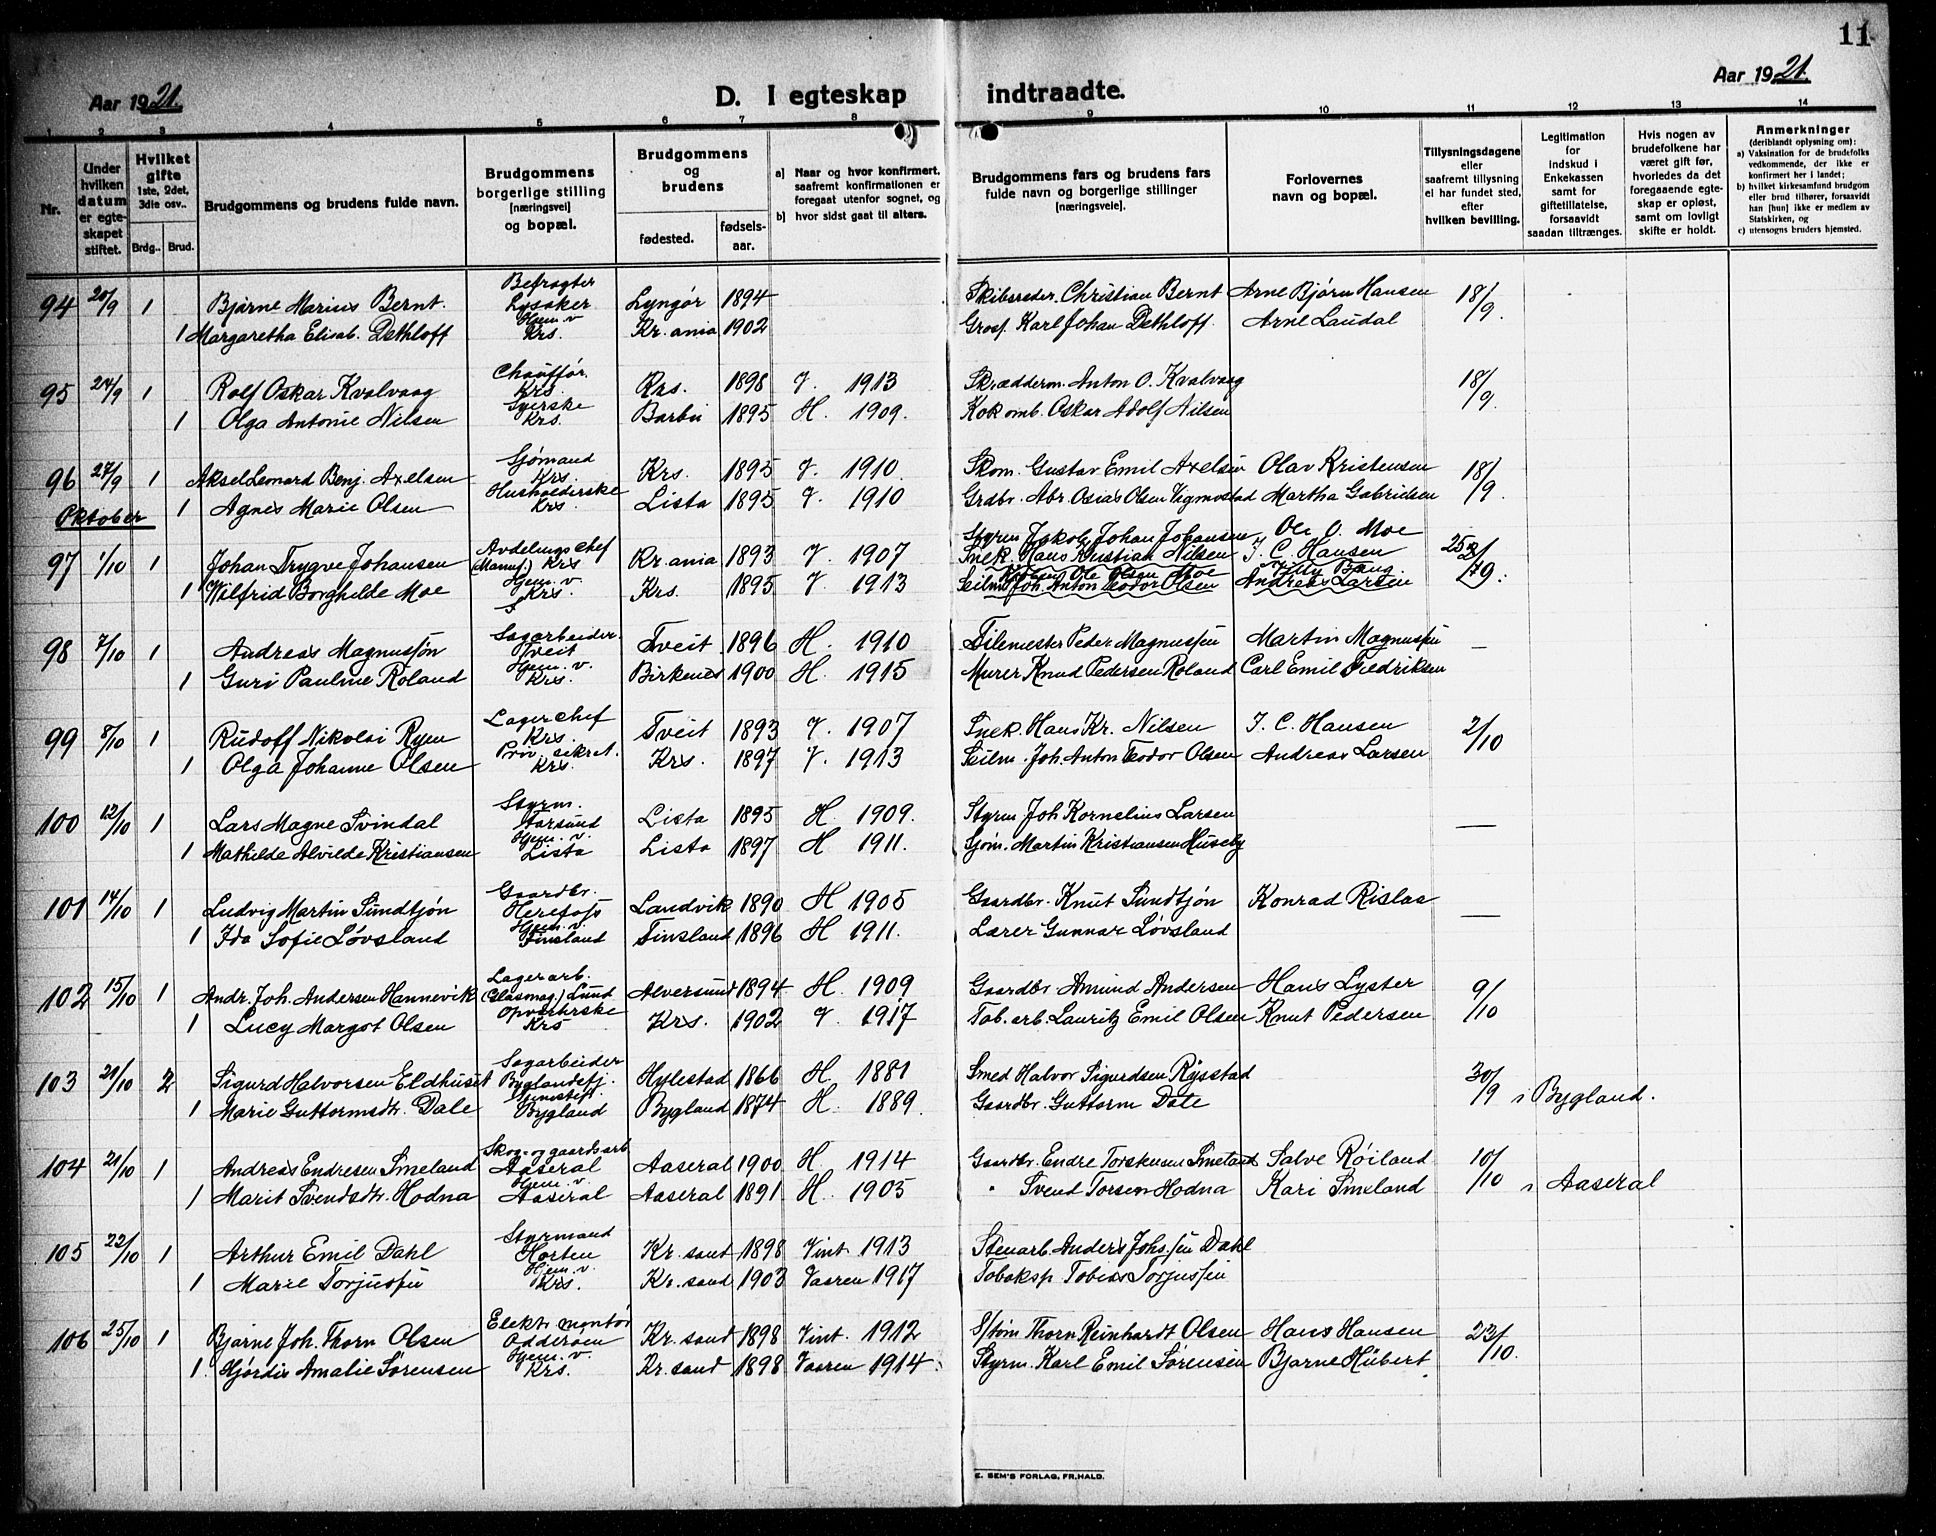 11
Aar 1921. D. I egteskap indtraadte. Aar 1921.
1 2 3 4 5 6 7 8 9 10 11 12 13 14
Nr.
Under hvilken datum er egteskapet stiftet.
Hvilket gifte 1ste, 2det, 3die osv..
Brdg.. Brud.
Brudgommens og brudens fulde navn.
Brudgommens borgerlige stilling [næringsvei] og bopæl.
Brudgommens og brudens
fødested. fødsels-aar.
a) Naar og hvor konfirmert, saafremt konfirmationen er foregaat utenfor sognet, og
b) hvor sidst gaat til alters.
Brudgommens fars og brudens fars fulde navn og borgerlige stillinger [næringsveie].
Forlovernes navn og bopæl.
Tillysningsdagene eller saafremt tillysning ei har fundet sted, efter hvilken bevilling.
Legitimation for indskud i Enkekassen samt for giftetillatelse, forsaavidt saadan tiltrænges.
Hvis nogen av brudefolkene har været gift før, hvorledes da det foregaaende egteskap er opløst, samt om lovligt skifte er holdt.
Anmerkninger (deriblandt oplysning om):
a) Vaksination for de brudefolks vedkommende, der ikke er konfirmert her i landet;
b) hvilket kirkesamfund brudgom eller brud tilhører, forsaavidt han [hun] ikke er medlem av Statskirken, og
c) utensogns bruders hjemsted.
94 20/9 1 Bjarne Marius Bernt. Befragter Lysaker Lyngør 1894 Skibsreder. Christian Bernt Arne Bjørn Hansen 18/9
1 Margaretha Elisab. Dethloff Hjem. v Krs. Kr.ania 1902 Gros. Karl Johan Dethloff. Arne Laudal
95 24/9 1 Rolf Oskar Kvalvaag Chauffør. Krs. Krs. 1898 V. 1913 Skrædderm. Anton O. Kvalvaag 18/9
1 Olga Antonie Nilsen Syerske Krs. Barbu 1895 H. 1909. Kokomb. Oskar Adolf Nilsen
96 27/9 1 Aksel Leonard Benj. Axelsen Sjømand Krs. Krs. 1895 V. 1910. Skom. Gustav Emil Axelsen Olav Kristensen 18/9
1 Agnes Marie Olsen Husholderske Krs Lista 1895 V 1910 Grdbr. Abr. Osias Olsen Vigmostad Martha Gabrielsen
Oktober
97 1/10 1 Johan Trygve Johansen Avdelingschef (Manuf.) Krs Kr.ania 1893 V. 1907 Styrm Jakob Johan Johansen Ole O. Moe
Snek. Hans Kristian Nilsen J. C. Hansen 25/9
1 Wilfrid Borghilde Moe Hjem. v. Krs Krs. 1895 V 1913 Ole Olsen Moe
Seilm Joh. Anton Teodor Olsen Andreas Larsen
98 7/10 1 Andreas Magnussøn Sagarbeider. Tveit Tveit 1896 H. 1910 Filemester Peder Magnussen Martin Magnussen —
1 Guri Pauline Roland Hjem. v. Krs. Birkenes 1900 H. 1915 Murer Knud Pedersen Roland Carl Emil Fredriksen
99 8/10 1 Rudolf Nikolai Ryen Lagerchef Krs. Tveit 1893 V. 1907 Snek. Hans Kr. Nilsen J. C. Hansen 2/10
1 Olga Johanne Olsen Priv. sekret. Krs. Krs. 1897 V. 1913 Seilm. Joh. Anton Teodor Olsen Andreas Larsen
100 12/10 1 Lars Magne Svindal Styrm. Farsund Lista 1895 H. 1909. Styrm Joh Kornelius Larsen —
1 Mathilde Alvilde Kristiansen Hjem. v. Lista Lista 1897 H 1911. Sjøm. Martin Kristiansen Huseby
101 14/10 1 Ludvig Martin Sundtjøn Gaardbr. Herefoss Landvik 1890 H 1905 Gaardbr. Knut Sundtjøn Konrad Rislaa —
1 Ida Sofie Løvsland Hjem. v. Finsland Finsland 1896 H 1911. Lærer Gunnar Løvsland
102 15/10 1 Andr. Joh. Andersen Hannevik Lagerarb. (Glasmag.) Lund Alversund 1894 H. 1909 Gaardbr Amund Andersen Hans Lyster 9/10
1 Lucy Margot Olsen Opvarterske Krs Krs. 1902 V. 1917 Tob. arb. Lauritz Emil Olsen Knut Pedersen
103 21/10 2 Sigurd Halvorsen Eldhuset Sagarbeider Byglandsfj. Hylestad 1866 H. 1881 Smed Halvor Sigurdsen Rysstad 30/9 i Bygland.
1 Marie Guttormsdr. Dale Bygland Bygland 1874 H. 1889. Gaardbr. Guttorm Dale
104 21/10 1 Andreas Endresen Smeland Skog- og gaardsarb Aaseral Aaseral 1900 H. 1914 Gaardbr. Endre Torskensen Smeland Salve Røiland 10/10 i Aaseral
1 Marit Svendsdr. Hodna Hjem. v. Aaseral Aaseral 1891 H. 1905 " Svend Torsen Hodna Kari Smeland
105 22/10 1 Arthur Emil Dahl Styrmand Horten Kr.sand 1898 Vint. 1913 Stenarb. Anders Johs.sen Dahl
1 Marie Torjussen Hjem. v. Krs. Kr.sand 1903 Vaaren 1917 Tobaksp Tobias Torjussen
106 25/10 1 Bjarne Joh. Thorn Olsen Elektr. montør Odderøen Kr.sand 1898 Vint. 1912 Thorn Reinhardt Olsen Hans Hansen 23/10.
1. Hjørdis Amalie Sørensen Hjem. v. Krs. Kr.sand 1898 Vaaren 1914 Styrm. Karl Emil Sørensen Bjarne Hübert
E. SEM'S FORLAG, FR.HALD.